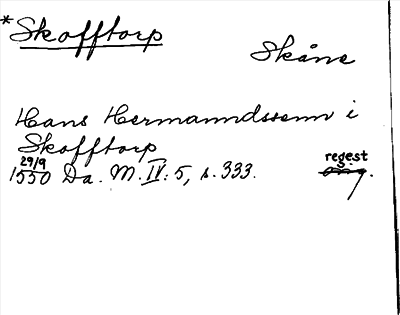 *Skofftorp
Skåne
Hans Hermanndssenn i
Skofftorp
29/9
1550 Da. M. IV: 5, s. 333.
regest
orig.